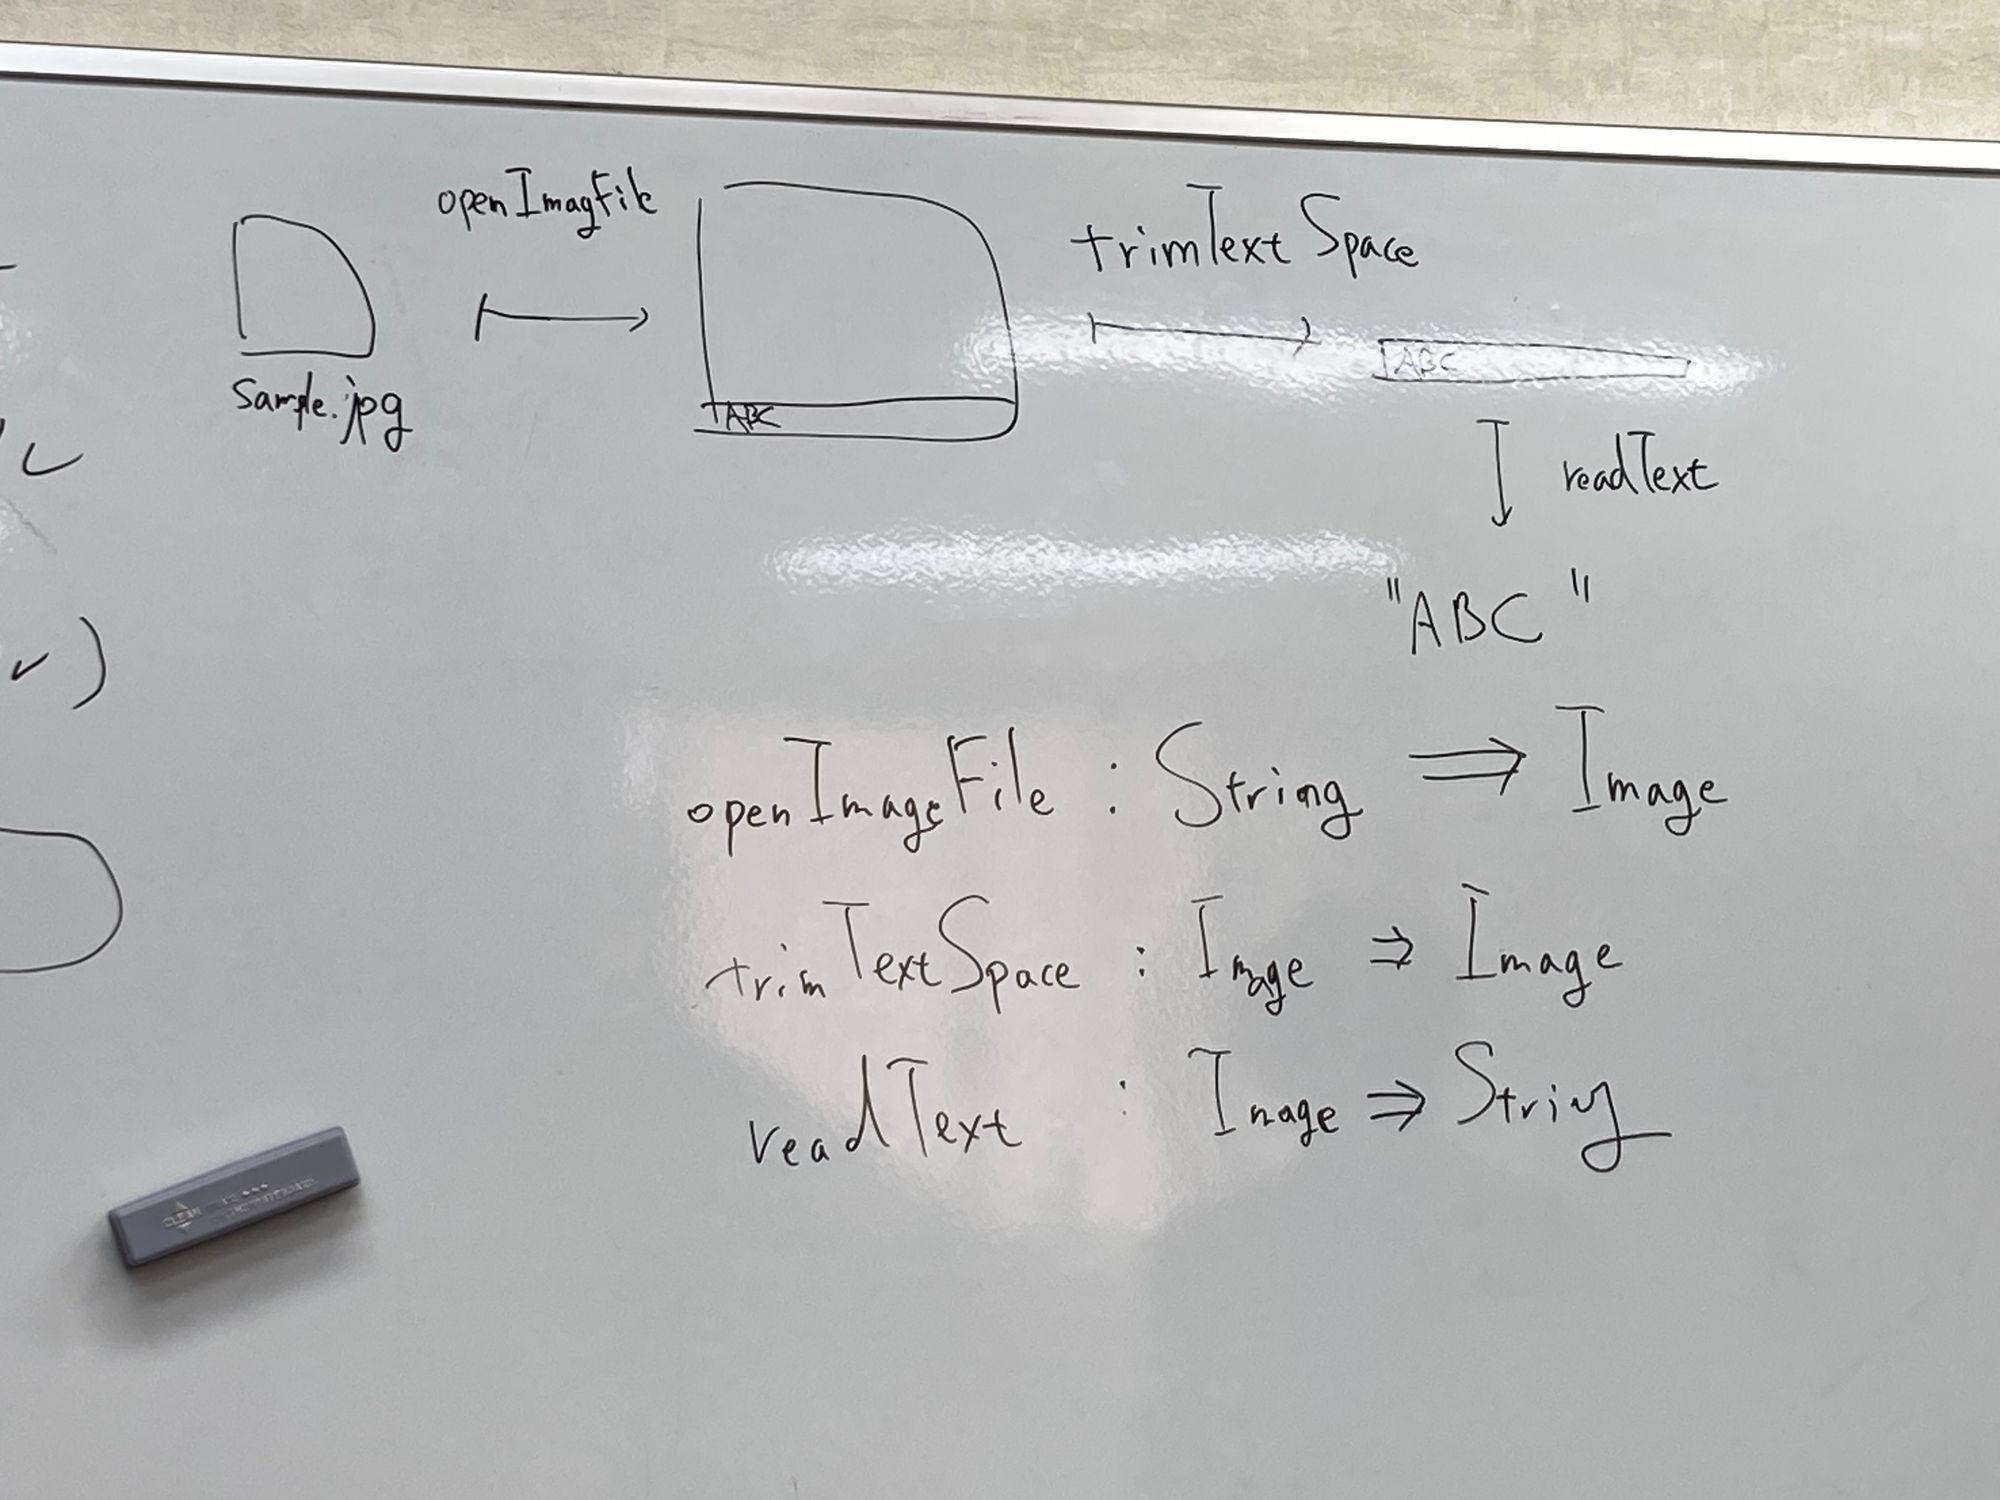 openImagFile
trimTextSpace
sample.jpg
ABC
ABC
readText
"ABC"
openImageFile : String ⇒ Image
trimTextSpace : Image ⇒ Image
readText : Image ⇒ String
CLEAN